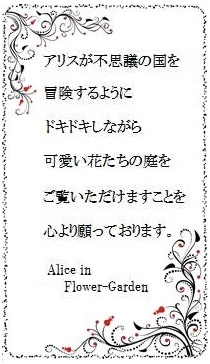 アリスが不思議の国を
冒険するように
ドキドキしながら
可愛い花たちの庭を
ご覧いただけますことを
心より願っております。
Alice in
Flower-Garden